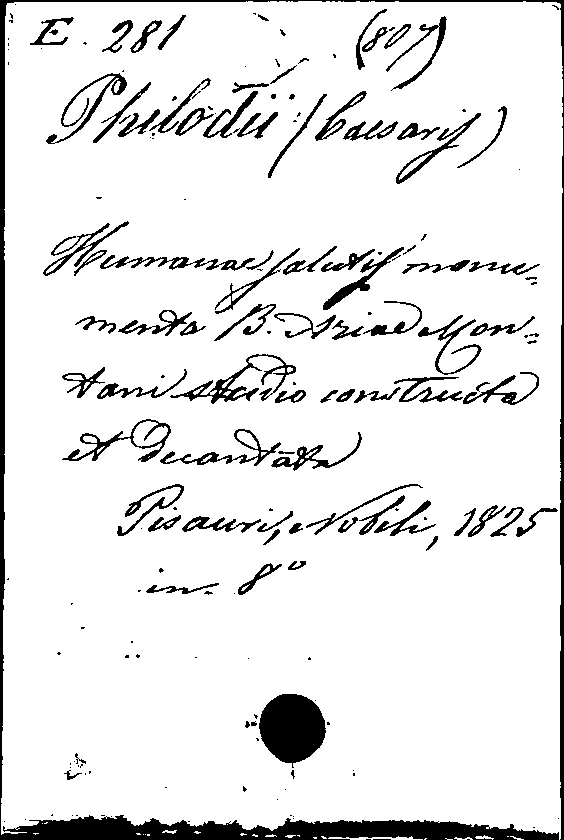 E. 281 (807)
Philodii (Caesaris)
Humanae salutis monu-
menta B. Ariae Mon-
tani studio constructa
et decantata
Pisauri, Nobili, 1825
in-8°